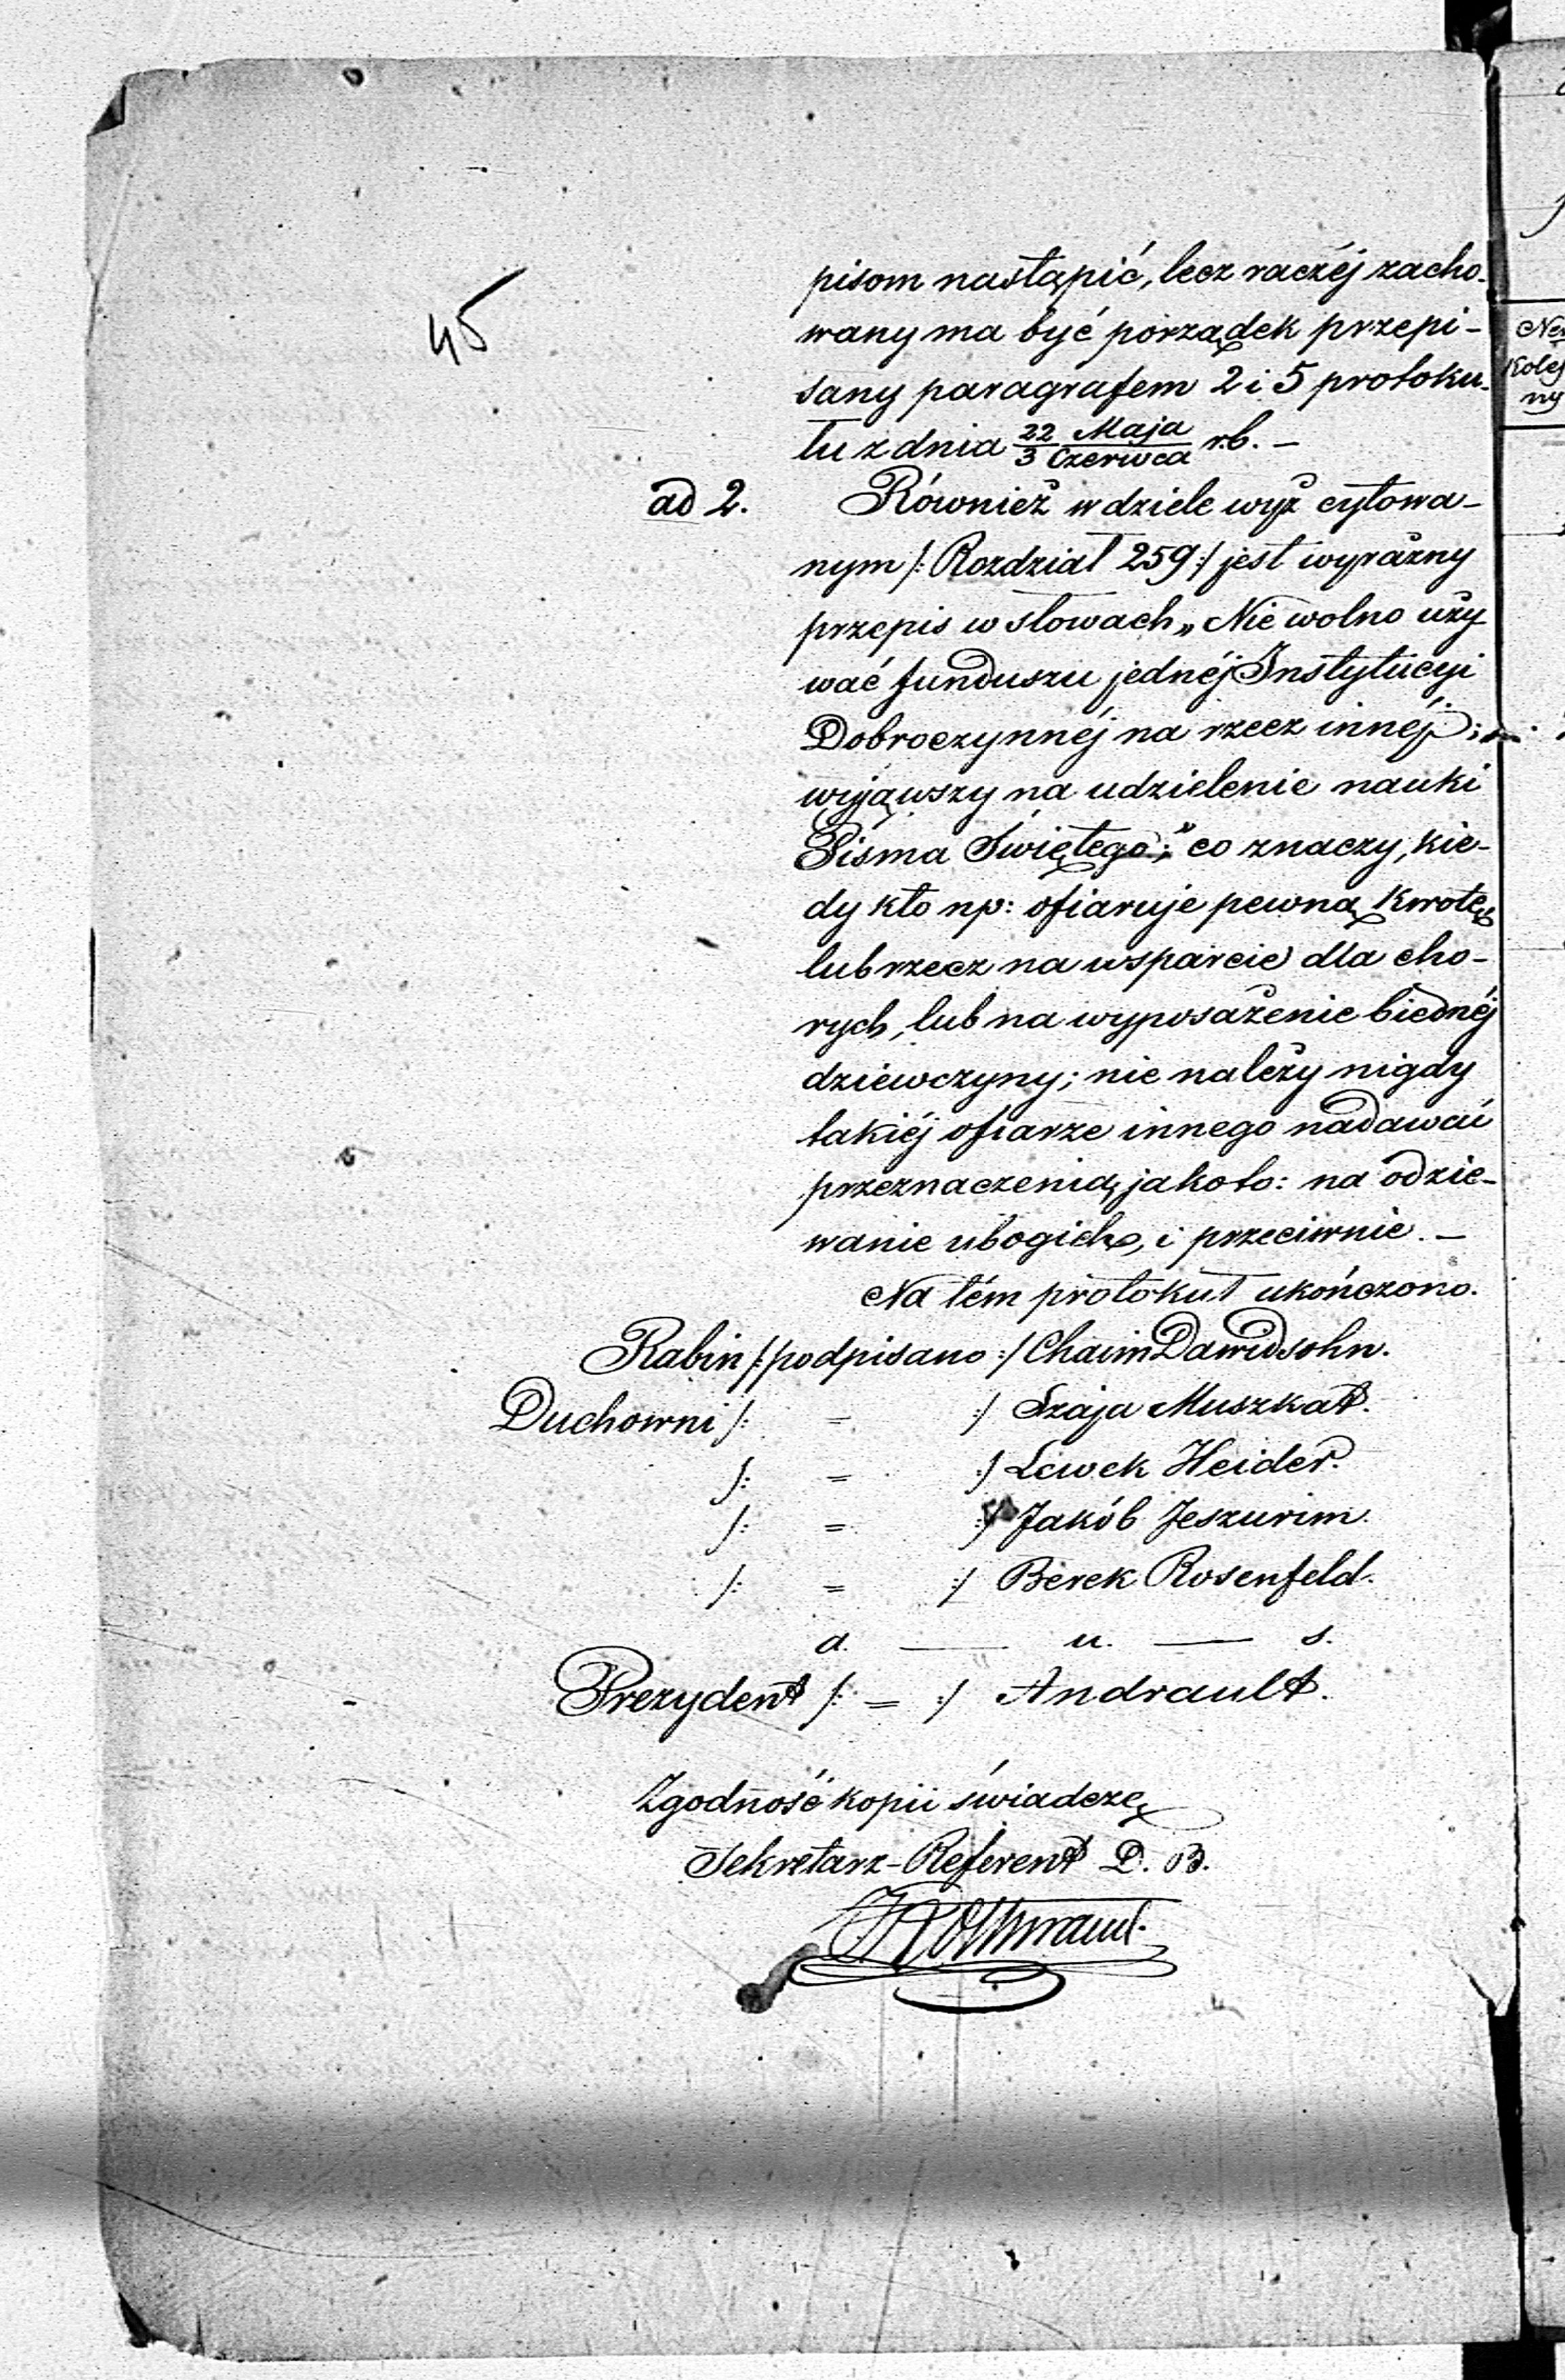 45
pisom nastąpić, lecz raczéj zacho-
wany ma być porządek przepi-
sany paragrafem 2 i 5 protoku-
łu z dnia 22 Maja / 3 Czerwca r.b. –
ad 2. Również w dziele wyż cytowa-
nym /: Rozdział 259 :/ jest wyraźny
przepis w słowach „Nie wolno uży
wać funduszu jednéj Instytucyi
Dobroczynnéj na rzecz innéj;
wyjąwszy na udzielenie nauki
Pisma Świętego;" co znaczy, kie-
dy kto np: ofiaruje pewną kwotę
lub rzecz na wsparcie dla cho-
rych, lub na wyposażenie biednéj
dziewczyny; nie należy nigdy
takiéj ofiarze innego nadawać
przeznaczenia, jakoto: na odzie-
wanie ubogich, i przeciwnie. –
Na tém protokuł ukończono.
Rabin /: podpisano :/ Chaim Dawidsohn.
Duchowni /: = :/ Szaja Muszkat.
/: = :/ Lewek Heider.
/: = :/ Jakób Jeszurim.
/: = :/ Berek Rosenfeld.
a. — u. — s.
Prezydent /: = :/ Andrault.
Zgodność kopii świadczę
Sekretarz-Referent D. B.
Ner
Kolej
ny